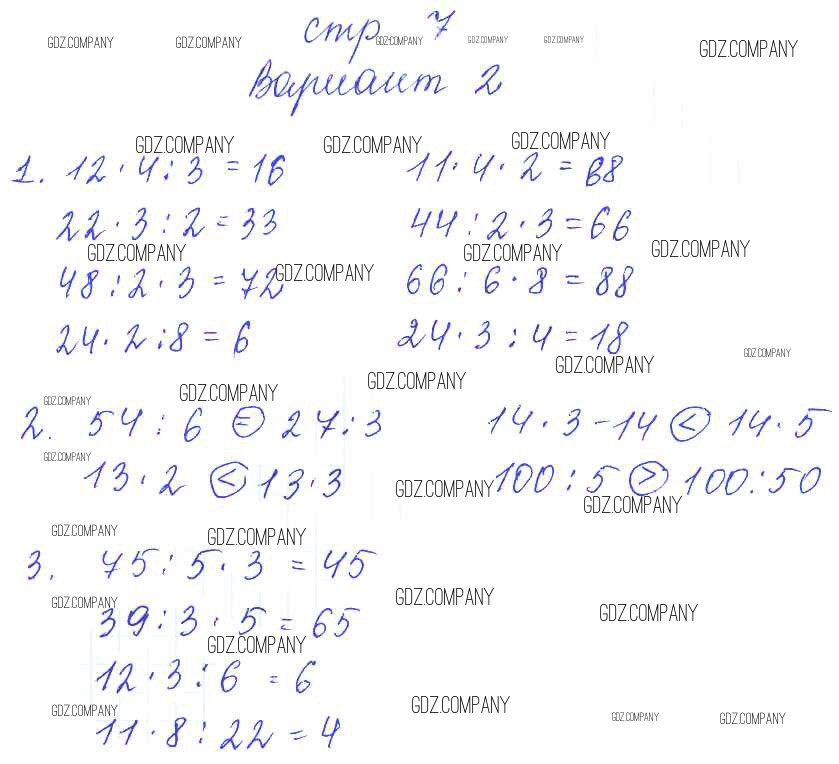 GDZ.COMPANY GDZ.COMPANY стр GDZ.COMPANY 7 GDZ.COMPANY GDZ.COMPANY GDZ.COMPANY
Вариант 2
GDZ.COMPANY GDZ.COMPANY GDZ.COMPANY
1. 12 · 4 : 3 = 16 11 · 4 · 2 = 88
22 · 3 : 2 = 33 44 : 2 · 3 = 66
GDZ.COMPANY GDZ.COMPANY GDZ.COMPANY
48 : 2 · 3 = 72 GDZ.COMPANY 66 : 6 · 8 = 88
24 · 2 : 8 = 6 24 · 3 : 4 = 18
GDZ.COMPANY GDZ.COMPANY
GDZ.COMPANY GDZ.COMPANY GDZ.COMPANY
2. 54 : 6 = 27 : 3 14 · 3 - 14 < 14 · 5
GDZ.COMPANY
13 · 2 < 13 · 3 GDZ.COMPANY 100 : 5 > 100 : 50
GDZ.COMPANY
GDZ.COMPANY GDZ.COMPANY
3. 75 : 5 · 3 = 45
GDZ.COMPANY GDZ.COMPANY GDZ.COMPANY
39 : 3 · 5 = 65
GDZ.COMPANY
12 · 3 : 6 = 6
GDZ.COMPANY GDZ.COMPANY GDZ.COMPANY GDZ.COMPANY
11 · 8 : 22 = 4